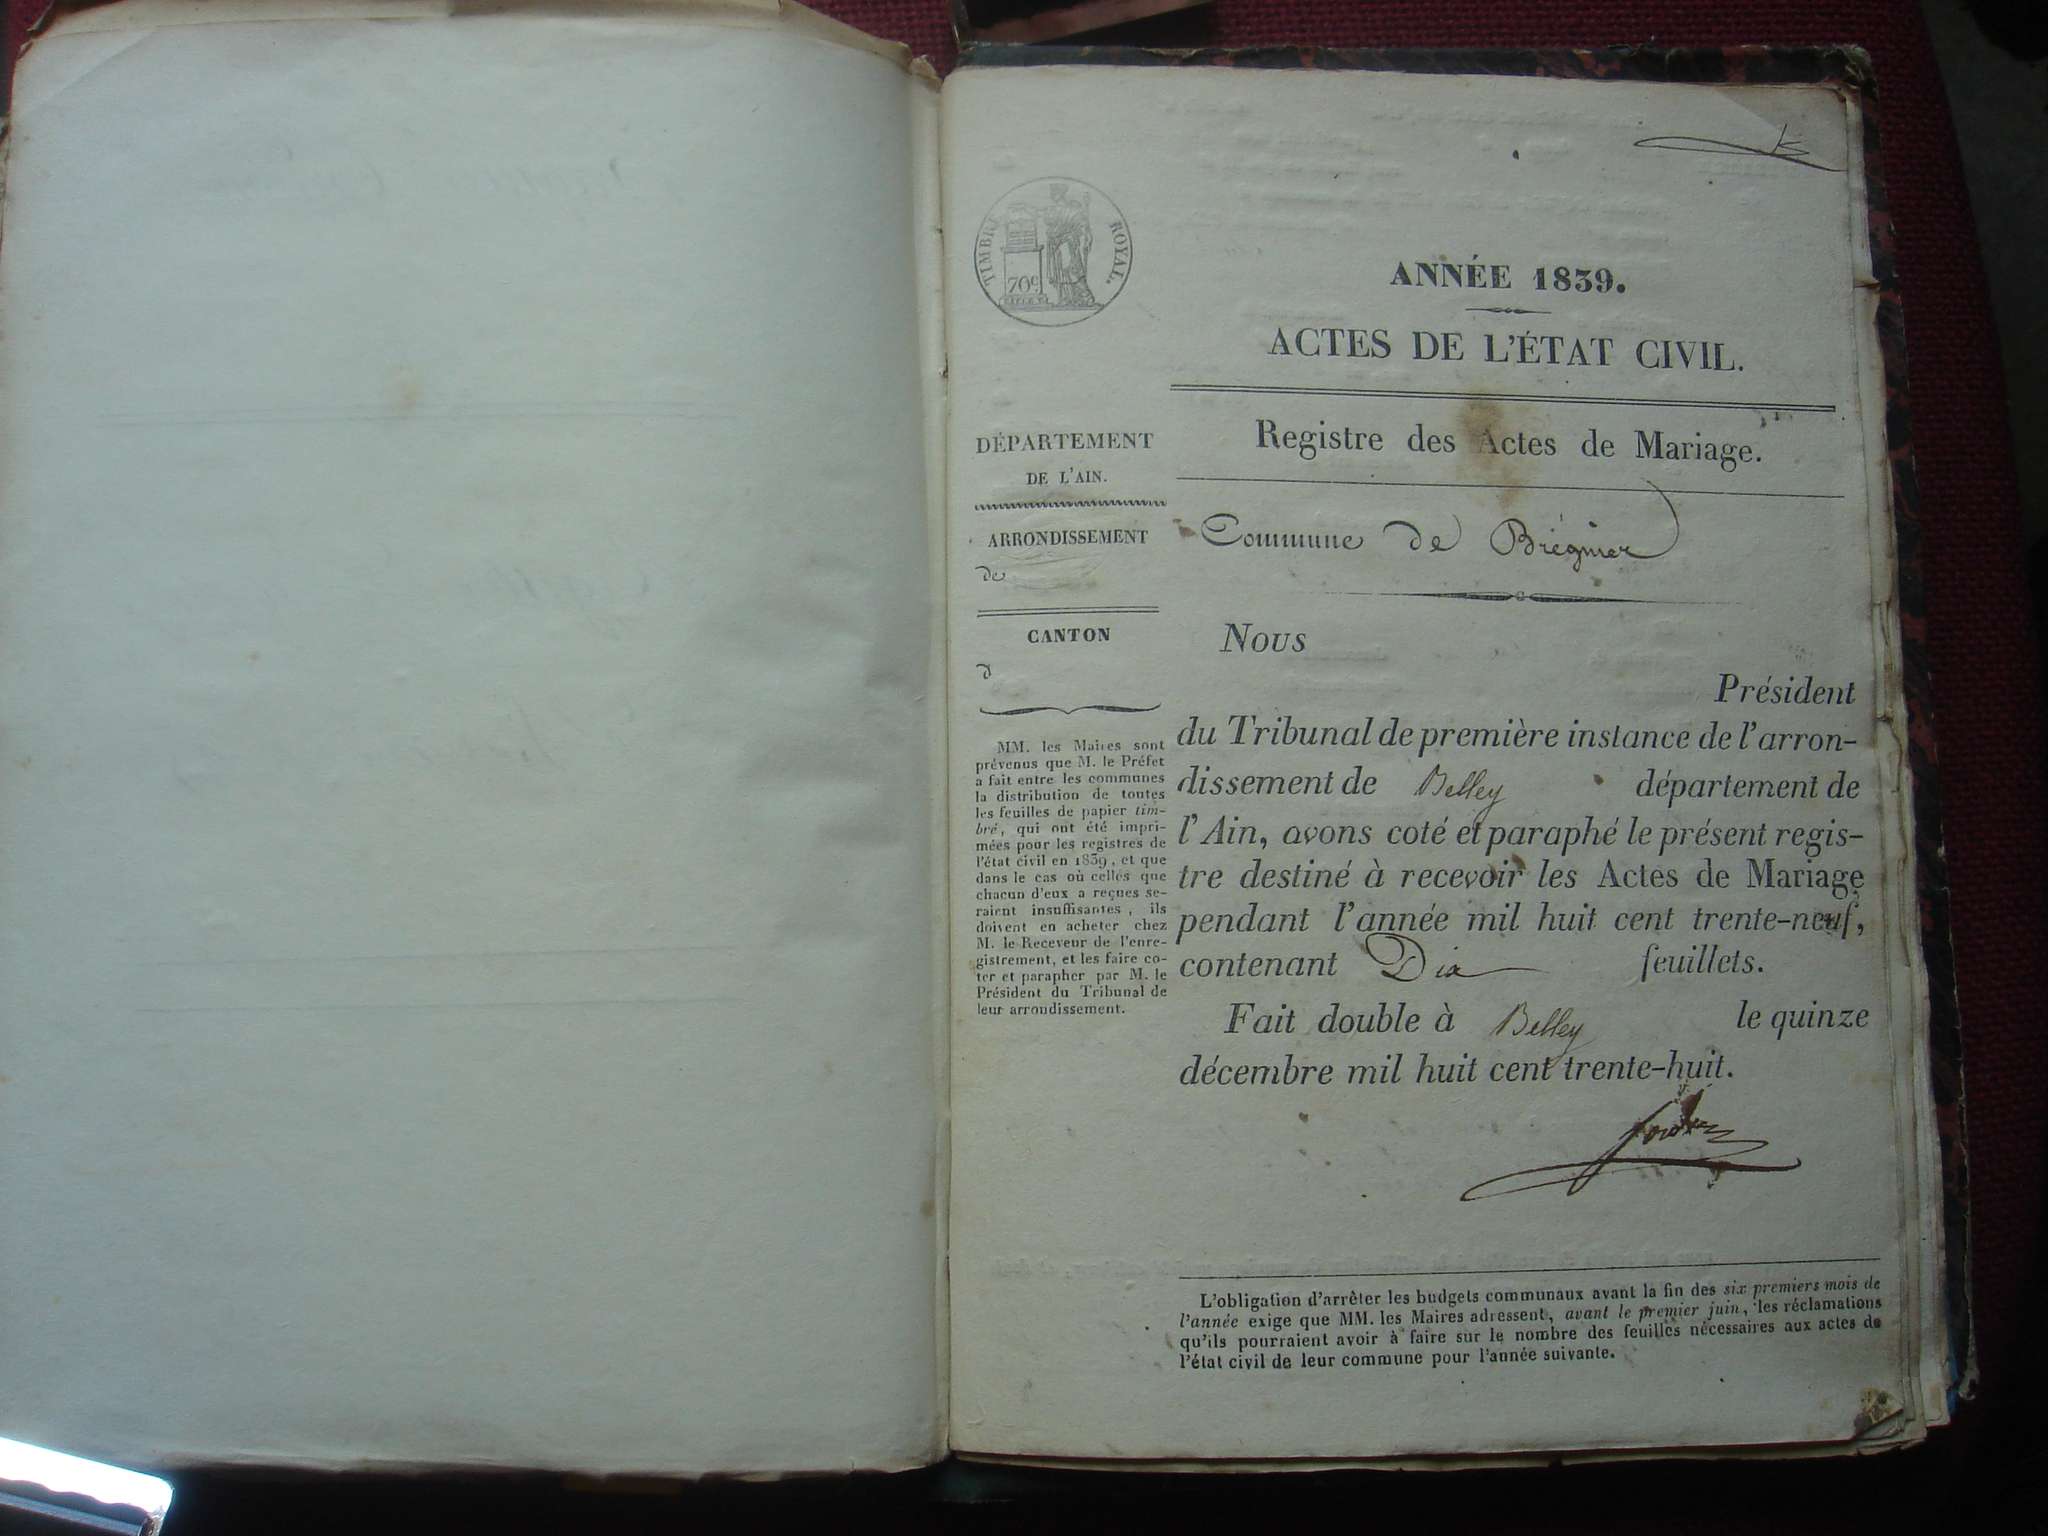 TIMBRE ROYAL.
70c
ANNÉE 1839.
ACTES DE L'ÉTAT CIVIL.
Registre des Actes de Mariage.
Commune de Brégnier
DÉPARTEMENT
DE L'AIN.
ARRONDISSEMENT
de
CANTON
d
MM. les Maires sont
prévenus que M. le Préfet
a fait entre les communes
la distribution de toutes
les feuilles de papier tim-
bré, qui ont été impri-
mées pour les registres de
l'état civil en 1839, et que
dans le cas où celles que
chacun d'eux a reçues se-
raient insuffisantes, ils
doivent en acheter chez
M. le Receveur de l'enre-
gistrement, et les faire co-
ter et parapher par M. le
Président du Tribunal de
leur arrondissement.
Nous
Président
du Tribunal de première instance de l'arron-
dissement de Belley département de
l'Ain, avons coté et paraphé le présent regis-
tre destiné à recevoir les Actes de Mariage
pendant l'année mil huit cent trente-neuf,
contenant Dix feuillets.
Fait double à Belley le quinze
décembre mil huit cent trente-huit.
L'obligation d'arrêter les budgets communaux avant la fin des six premiers mois de
l'année exige que MM. les Maires adressent, avant le premier juin, les réclamations
qu'ils pourraient avoir à faire sur le nombre des feuilles nécessaires aux actes de
l'état civil de leur commune pour l'année suivante.